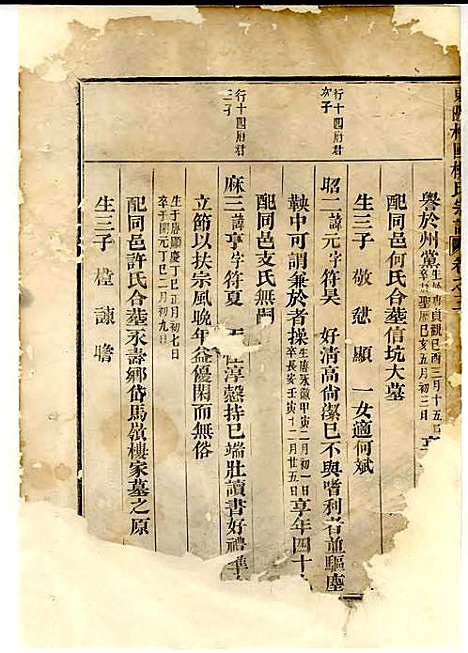 譽於州黨生於唐貞觀己酉三月十五日卒於聖曆己亥五月初三日享
配同邑何氏合墓信坑大墓
生三子 敬 愆 顯 一女適何斌
行十四府君次子
昭二諱元字符昊 好清高尚潔己不與嗜利者並驅塵
鞅中可謂兼於者操生唐永徽甲寅二月初一日卒長安壬寅十二月廿五日享年四十
配同邑支氏無嗣
行十四府君三子
麻三諱亨字符夏 性淳愨持己端壯讀書好禮準
立節以扶宗風晚年益優閑而無俗
生于唐顯慶丁巳正月初七日卒于開元丁巳二月初九日
配同邑許氏合墓永壽鄉岱馬嶺樓家墓之原
生三子 諫 瞻